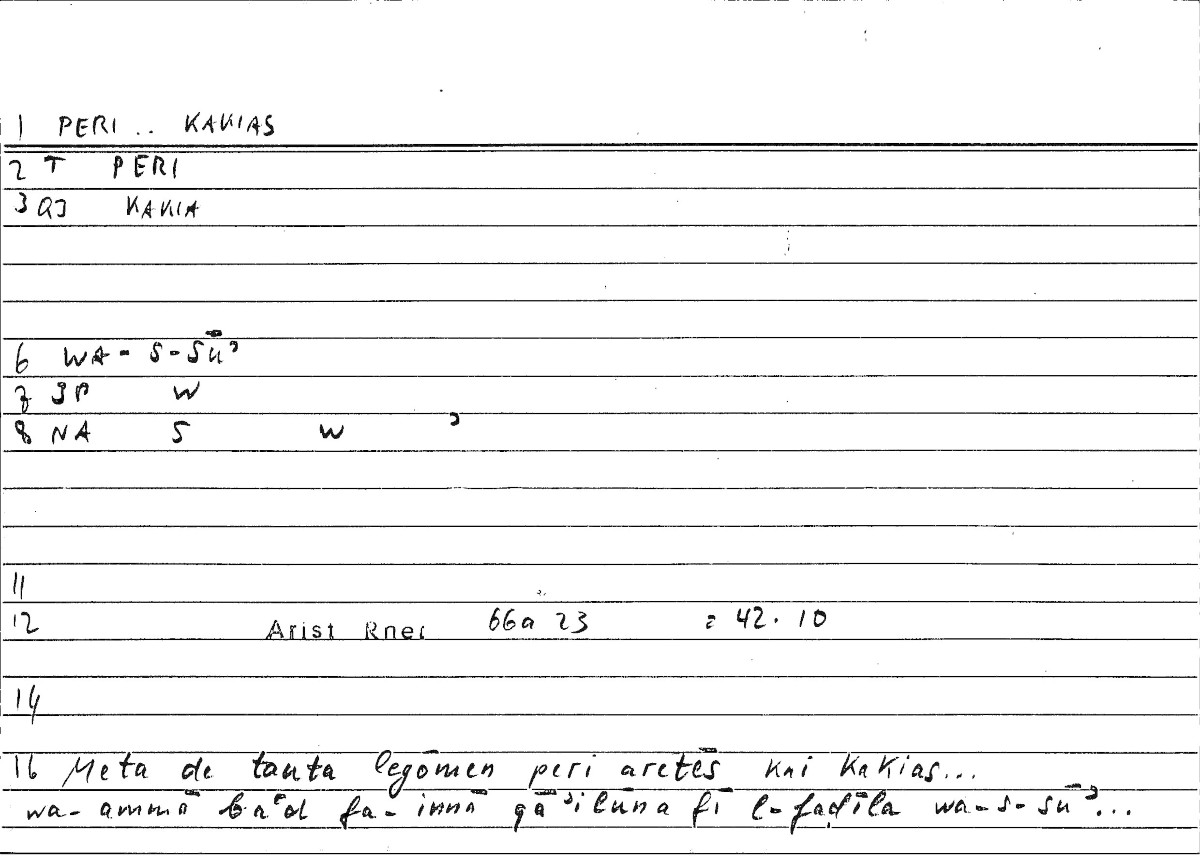 1 PERI .. KAKIAS
2 T PERI
3 QJ KAKIA
6 WA - S - Sūʾ
7 3P W
8 NA S W ʾ
11
12 Arist Rhet 66a 23 = 42.10
14
16 Meta de tauta legōmen peri aretēs kai kakias...
wa-ammā baʿd fa-innā qāʾilūna fī l-faḍīla wa-s-sūʾ...